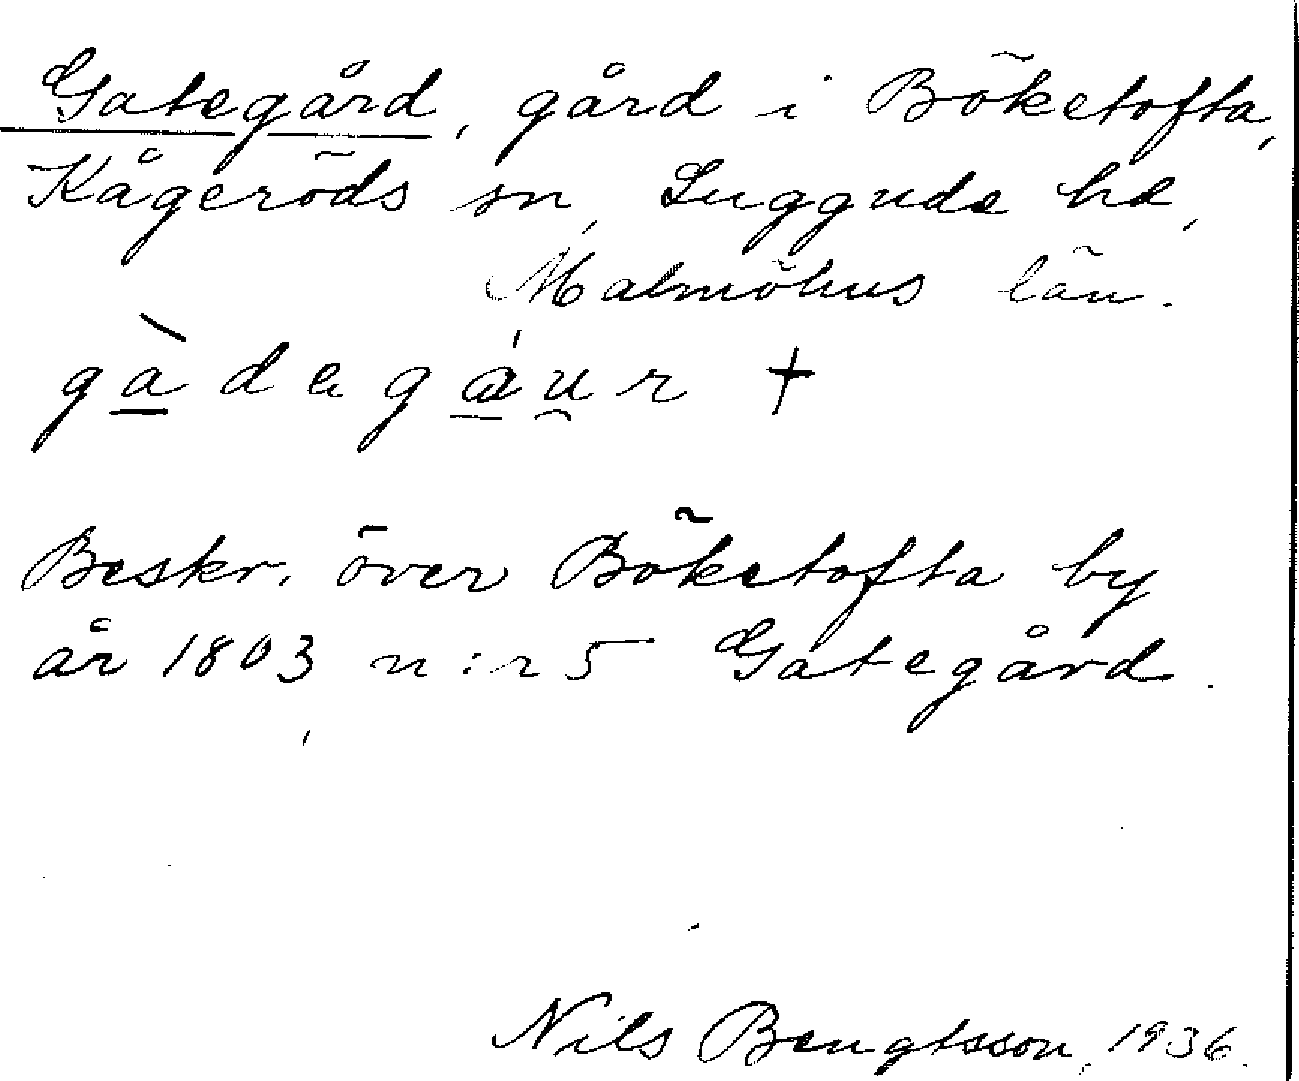 Gategård, gård i Böketofta,
Kågeröds sn, Luggude hd,
Malmöhus län.
gàdegáur +
Beskr. över Böketofta by
år 1803 n:r 5 Gategård.
Nils Bengtsson, 1936.